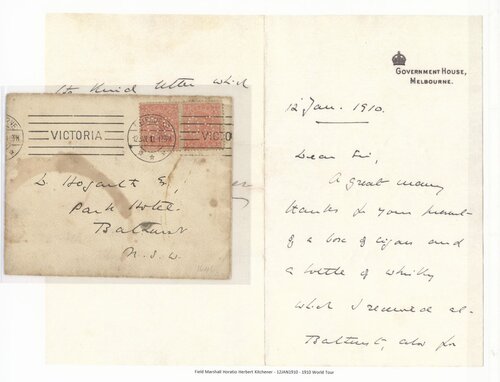 GOVERNMENT HOUSE,
MELBOURNE.
12 Jan. 1910.
Dear Sir,
A great many
thanks for your present
of a box of cigars and
a bottle of whisky
which I received at
Bathurst, also for
the kind letter which
VICTORIA
D. Hogarth Esq
Park Hotel
Bathurst
N.S.W.
Field Marshall Horatio Herbert Kitchener - 12JAN1910 - 1910 World Tour